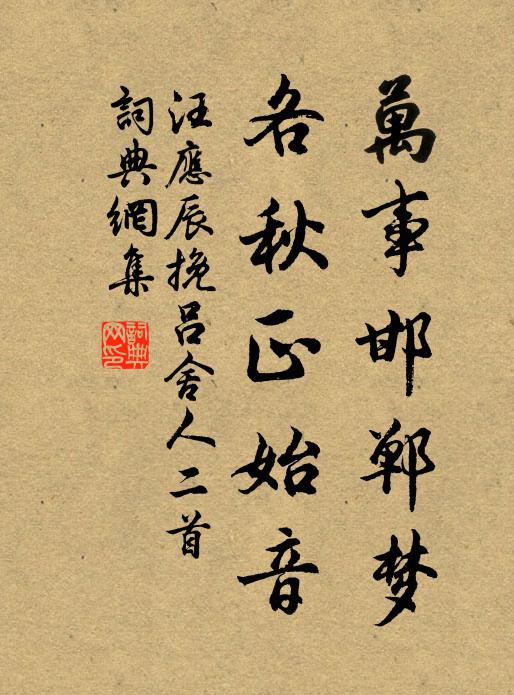 萬事邯鄲梦
各秋正始音
汪應辰挽吕舍人二首
詞典網集
詞典网印